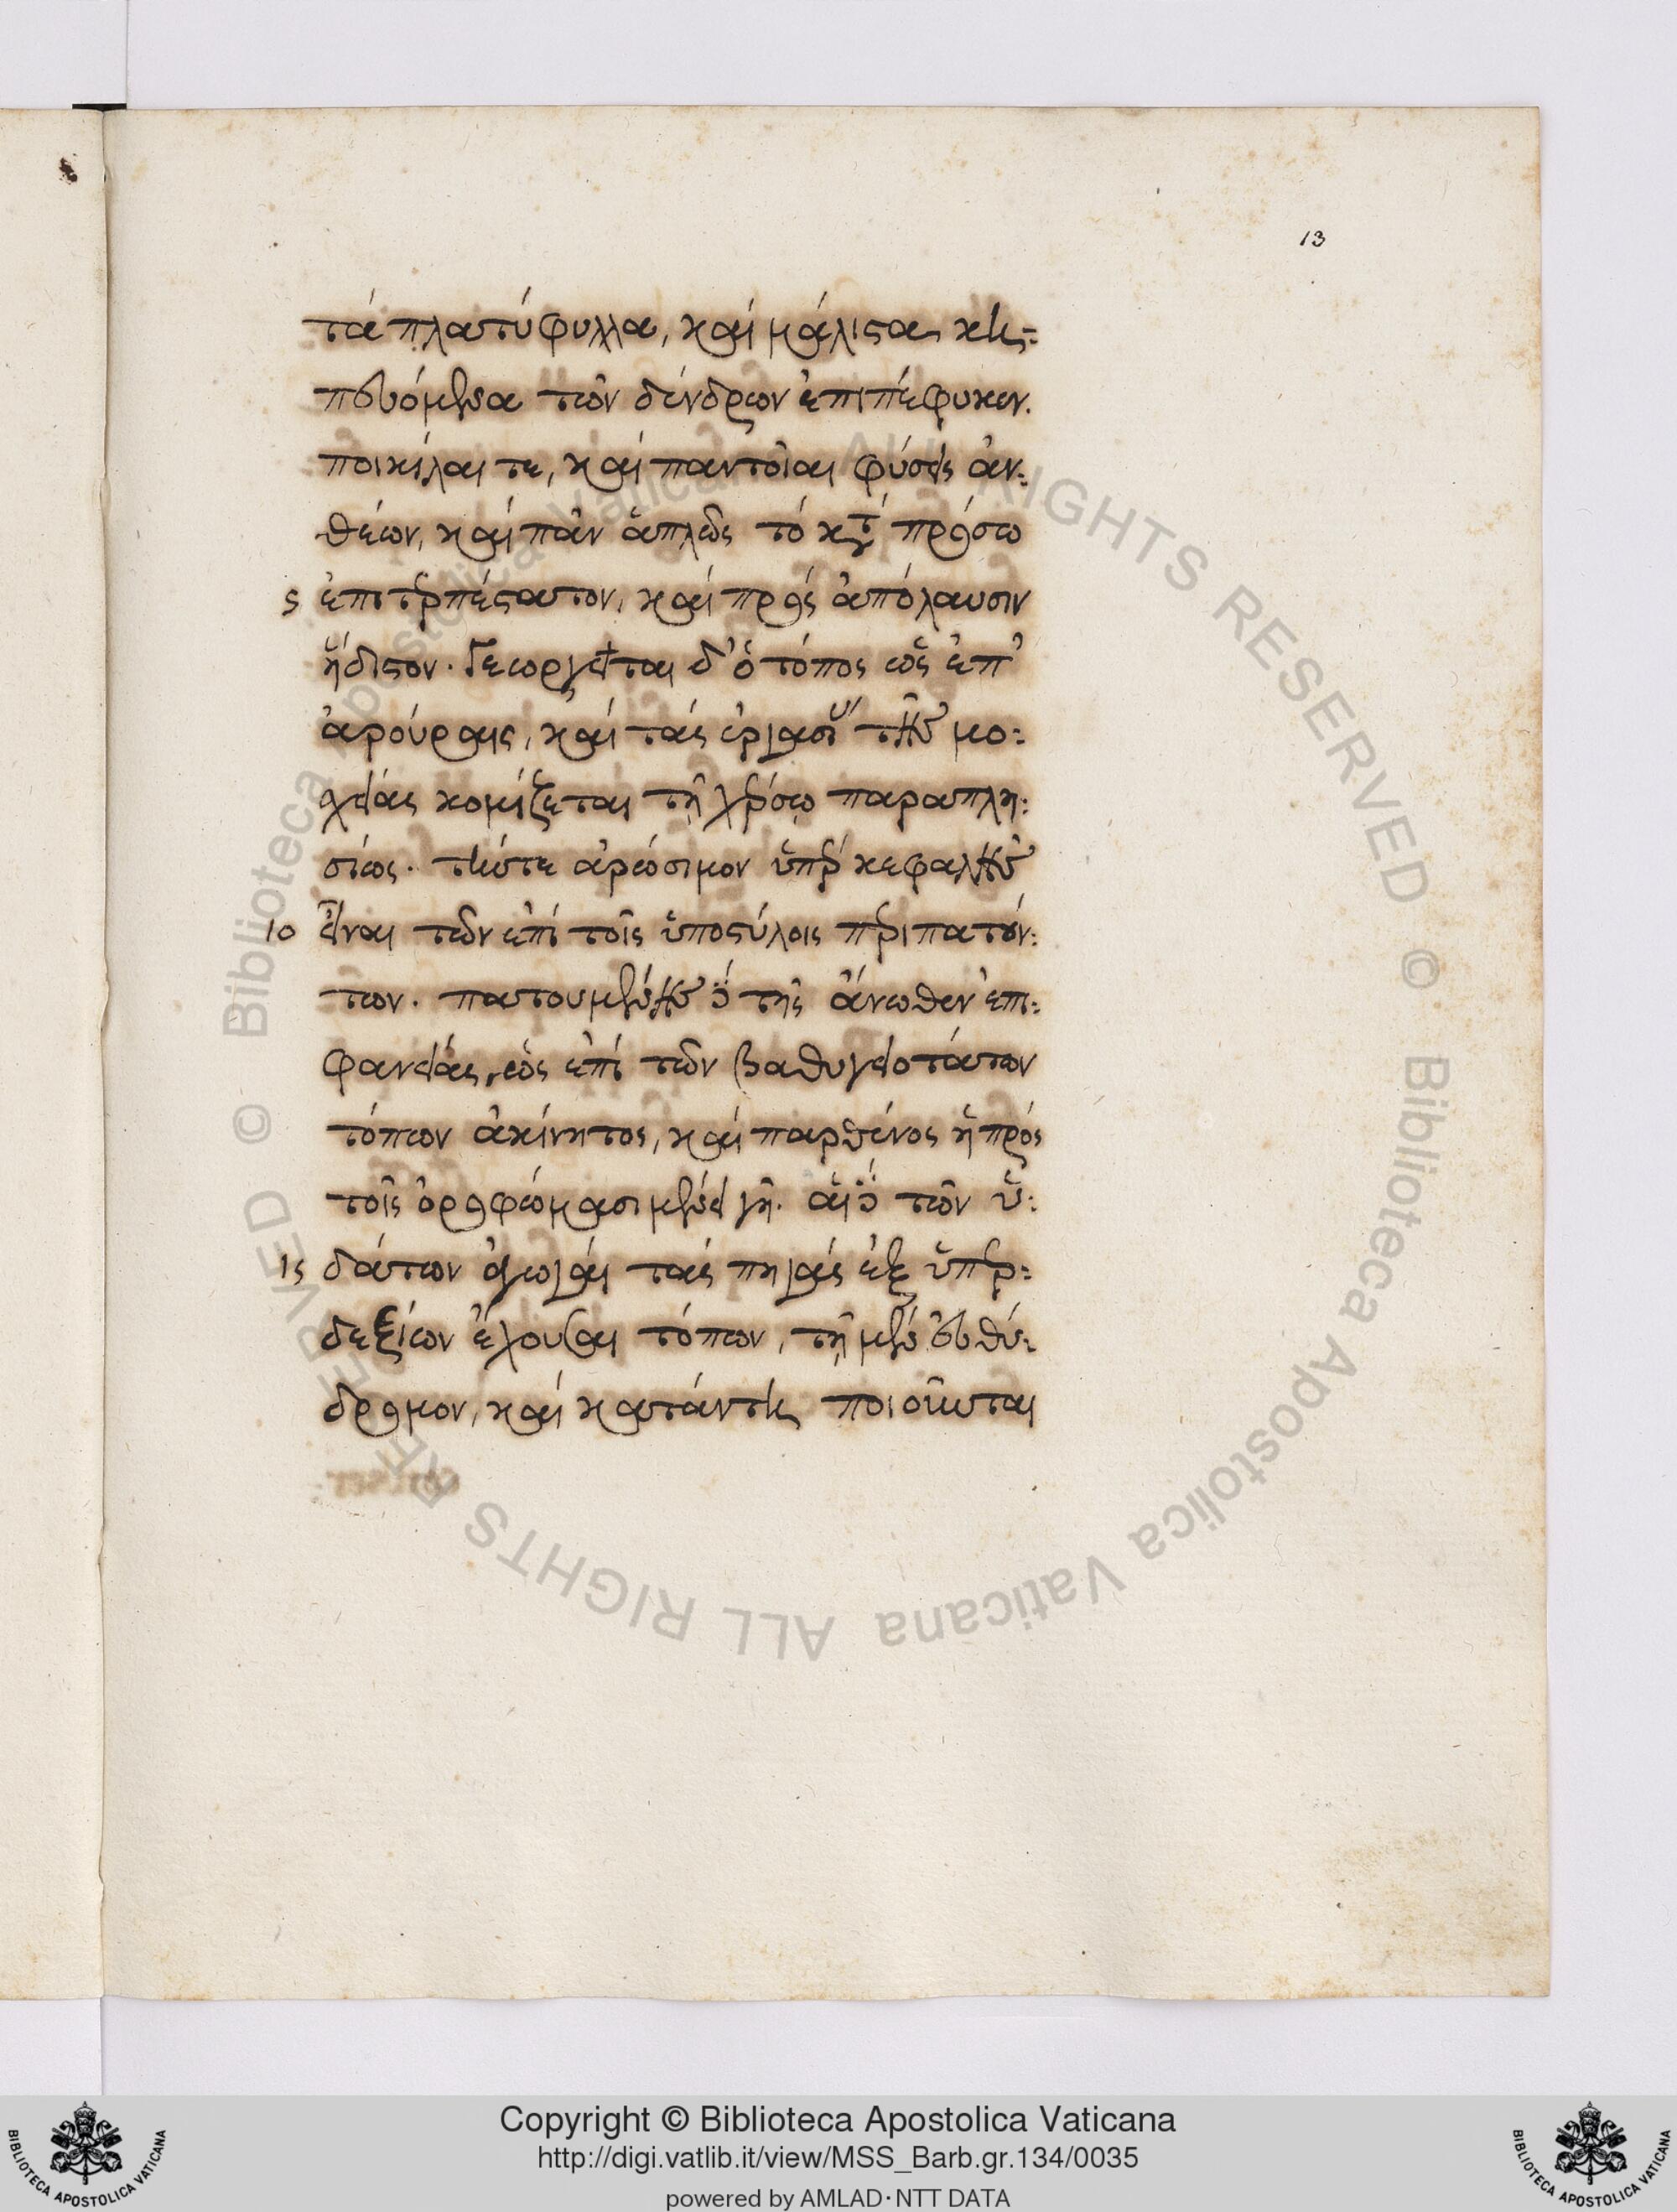 13
τὰ πλατύφυλλα, καὶ μάλιστα κη-
πευόμενα τῶν δένδρων ἐπιπέφυκεν.
ποικίλαι τε, καὶ παντοῖαι φύσεις ἀν-
θέων, καὶ πᾶν ἁπλῶς τὸ κτ πρόσω
5 ἐπιτερπέστατον, καὶ πρὸς ἀπόλαυσιν
ἥδιστον. Γεωργεῖται δ' ὁ τόπος ὡς ἐπ'
ἀρούραις, καὶ τὰς ἐργασι τῆς μο-
χείας κομίζεται τῇ χέρσῳ παραπλη-
σίως. τήντε ἀρώσιμον ὑπὲρ κεφαλῆς
10 εἶναι τῶν ἐπὶ τοῖς ὑποστύλοις περιπατούν-
των. πατουμένης δὲ τῆς ἄνωθεν ἐπι-
φανείας, ὡς ἐπὶ τῶν βαθυγειοτάτων
τόπων ἀκίνητος, καὶ παρθένος ἡ πρὸς
τοῖς ὀροφώμασι μένει γῆ. αἱ δὲ τῶν ὑ-
15 δάτων ἀγωγαὶ τὰς πηγὰς ἐξ ὑπερ-
δεξίων ἔχουσαι τόπων, τῇ μὲν εὐθύ-
δρομον, καὶ κατάντης ποιοῦνται
Biblioteca Apostolica Vaticana ALL RIGHTS RESERVED ©
Biblioteca Apostolica Vaticana ALL RIGHTS RESERVED ©
Copyright © Biblioteca Apostolica Vaticana
http://digi.vatlib.it/view/MSS_Barb.gr.134/0035
powered by AMLAD·NTT DATA
BIBLIOTECA APOSTOLICA VATICANA
BIBLIOTECA APOSTOLICA VATICANA